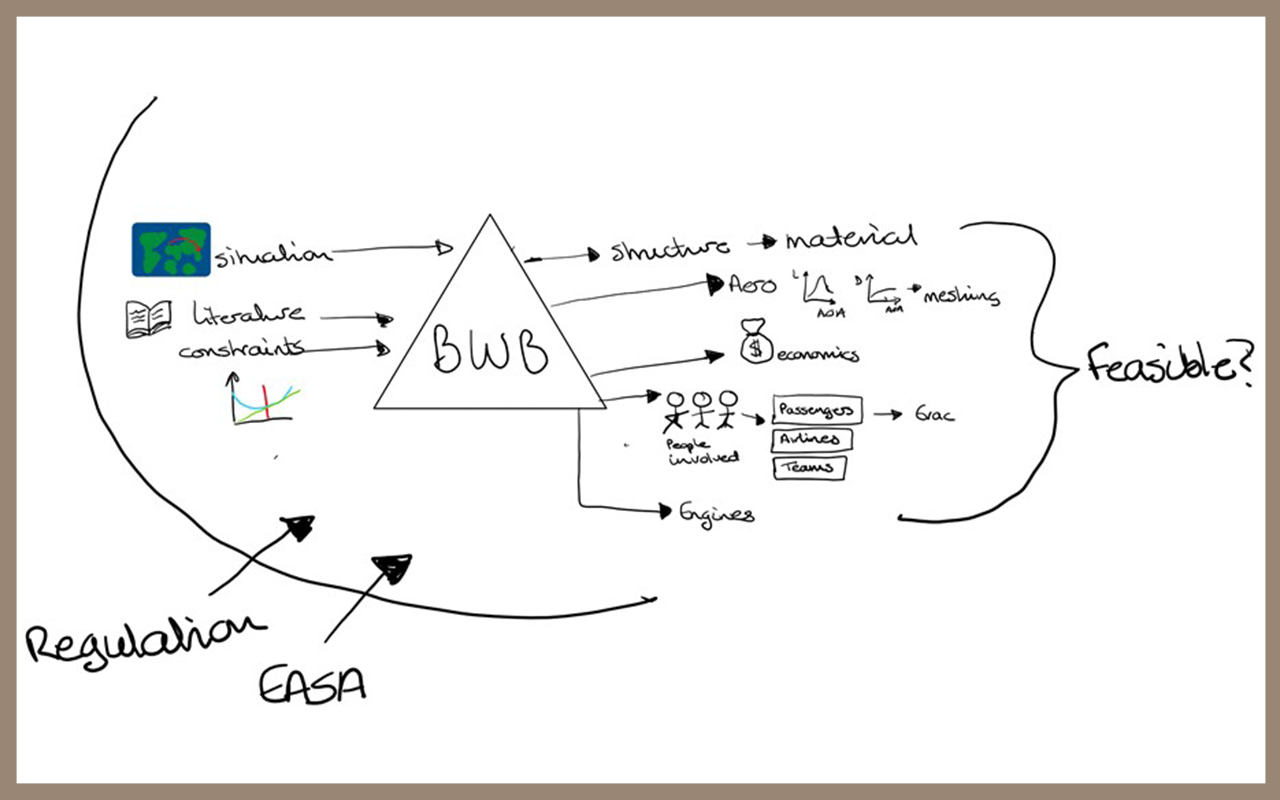 situation
Literature
constraints
BWB
structure → material
Aero
L
AOA
D
AOA
meshing
$
economics
People
involved
Passengers
Airlines
Teams
Evac
Engines
Feasible?
Regulation
EASA